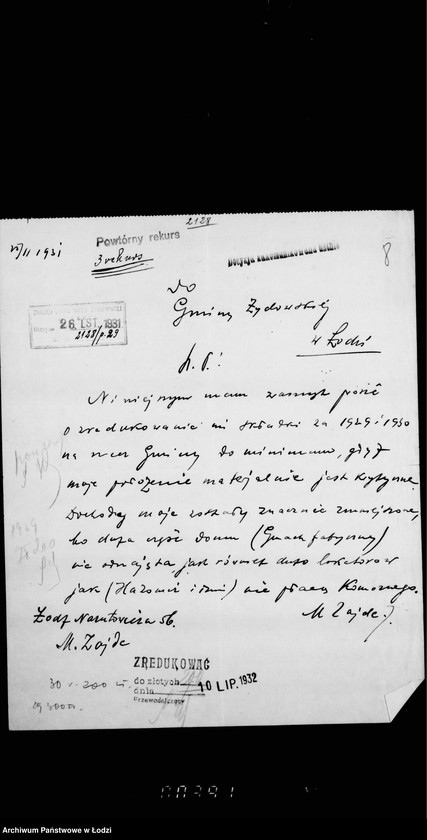 2128
Powtórny rekurs
3 rekurs
/11 1931
8
26. LST. 1931
2128/p.23
Do
Gminy Żydowskiej
w Łodzi
Niniejszym mam zaszczyt prosić
o zredukowanie mi składki za 1929 i 1930
na rzecz Gminy do minimum, gdyż
moje położenie materjalnie jest krytyczne.
Dochody moje zostały znacznie zmniejszone,
bo duża część domu (Gmach fabryczny)
nie wynajęta, jak również dużo lokatorów
jak (Hazomir i inni) nie płacą Komornego.
M Zajde
Łodź Narutowicza 56.
M. Zajde
ZREDUKOWAĆ
do złotych
dnia
10 LIP. 1932
Przewodniczący
30 - 200
29 300
1929
00391
Archiwum Państwowe w Łodzi